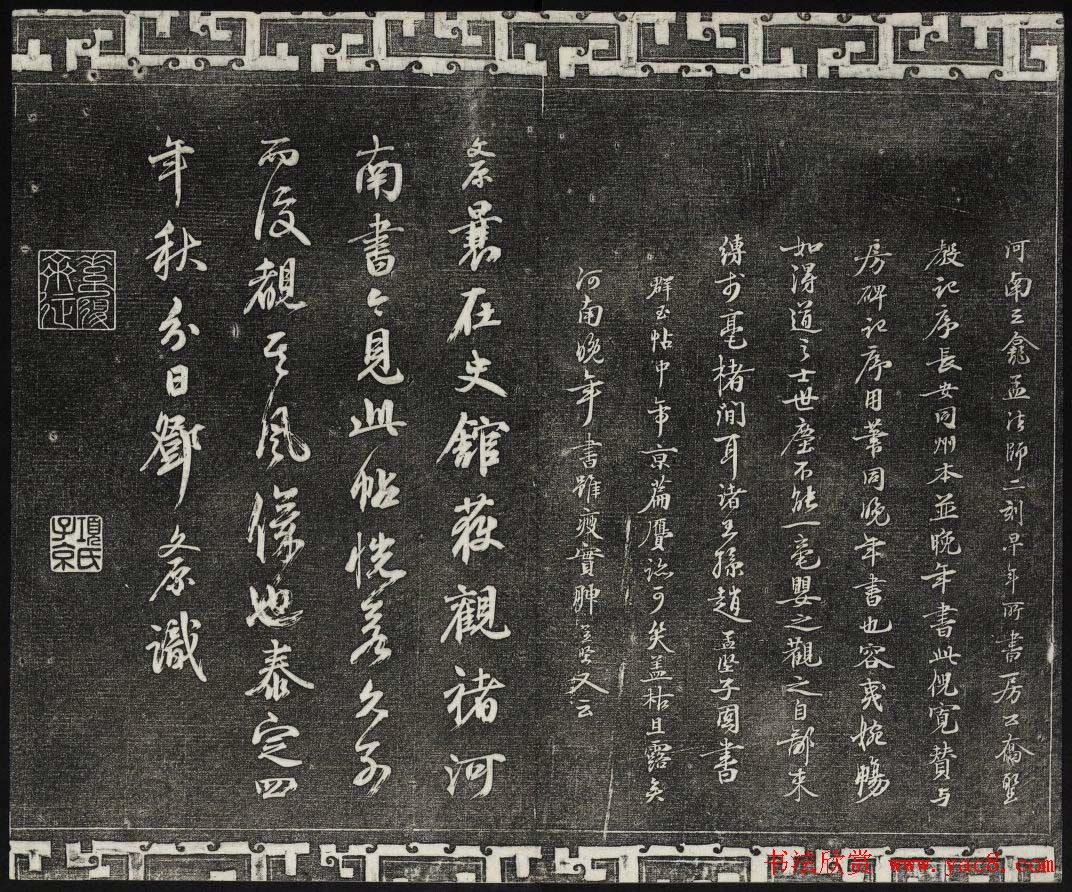 河南三龕孟法師二刻早年所書房公喬聖
教記序長安同州本並晚年書此倪寬贊与
房碑記序用筆同晚年書也容夷婉暢
如得道之士世塵不能一毫嬰之觀之自鄙束
縛於毫楮間耳諸王孫趙孟堅子固書
群玉帖中帝京篇贋跡可笑蓋枯且露矣
河南晚年書雖瘦實腴孟堅又云
文原曩在史館獲觀褚河
南書今見此帖恍若久別
而復覩其風儀也泰定四
年秋分日鄧文原識
項氏子京
书法欣赏 www.yac8.com